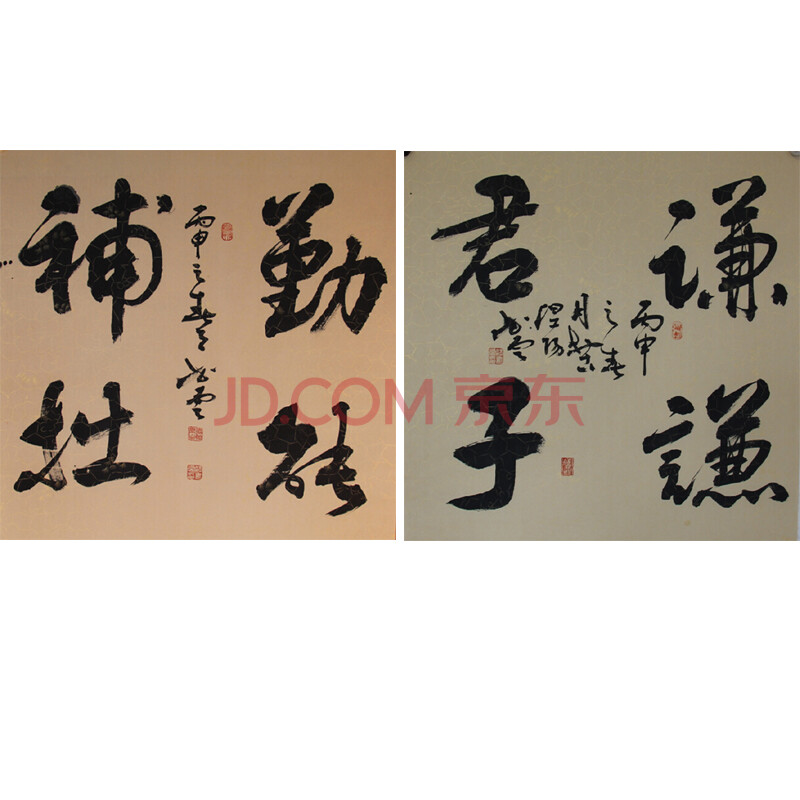 勤能
補拙
丙申之春
謙謙
君子
丙申
之春
月
JD.COM 京东